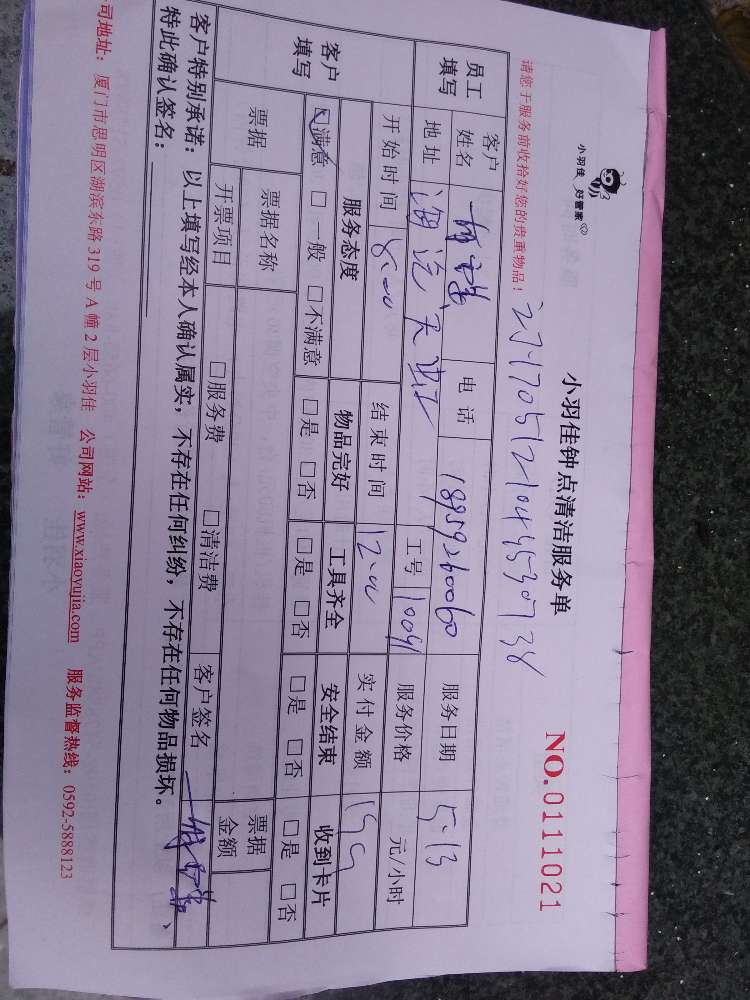 小羽佳 好管家
小羽佳钟点清洁服务单
NO.0111021
请您于服务前收拾好您的贵重物品！
员工填写 客户姓名 电话 18959260060 服务日期 5.13
地址 工号 10091 服务价格 元/小时
开始时间 8:00 结束时间 12:00 实付金额 199
客户填写 服务态度 物品完好 工具齐全 安全结束 收到卡片
☑满意 □一般 □不满意 □是 □否 □是 □否 □是 □否 □是 □否
票据 票据名称 票据金额
开票项目 □服务费 □清洁费 客户签名
客户特别承诺：以上填写经本人确认属实，不存在任何纠纷，不存在任何物品损坏。
特此确认签名：
司地址：厦门市思明区湖滨东路 319 号 A 幢 2 层小羽佳 公司网站：www.xiaoyujia.com 服务监督热线：0592-5888123